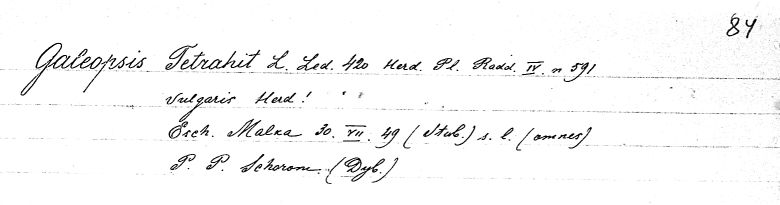 84
Galeopsis Tetrahit L. Led. 420 Herd. Pl. Radd. IV. n 591
vulgaris Herd!
Esch. Malka 30. VII. 49 (Stub.) s. l. (omnes)
P. P. Schorom. (Dyb.)